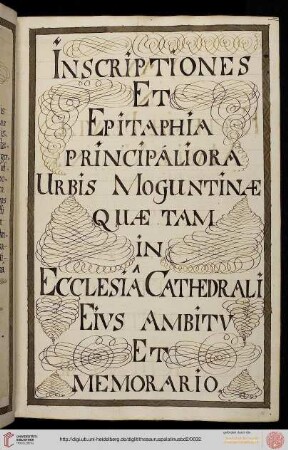 INSCRIPTIONES
ET
EPITAPHIA
PRINCIPÁLIORA
URBIS MOGUNTINÆ
QUÆ TAM
in
ECCLESIÂ CATHEDRALI
EIVS AMBITV
ET
MEMORARIO
http://digi.ub.uni-heidelberg.de/diglit/thesauruspalatinusbd2/0032